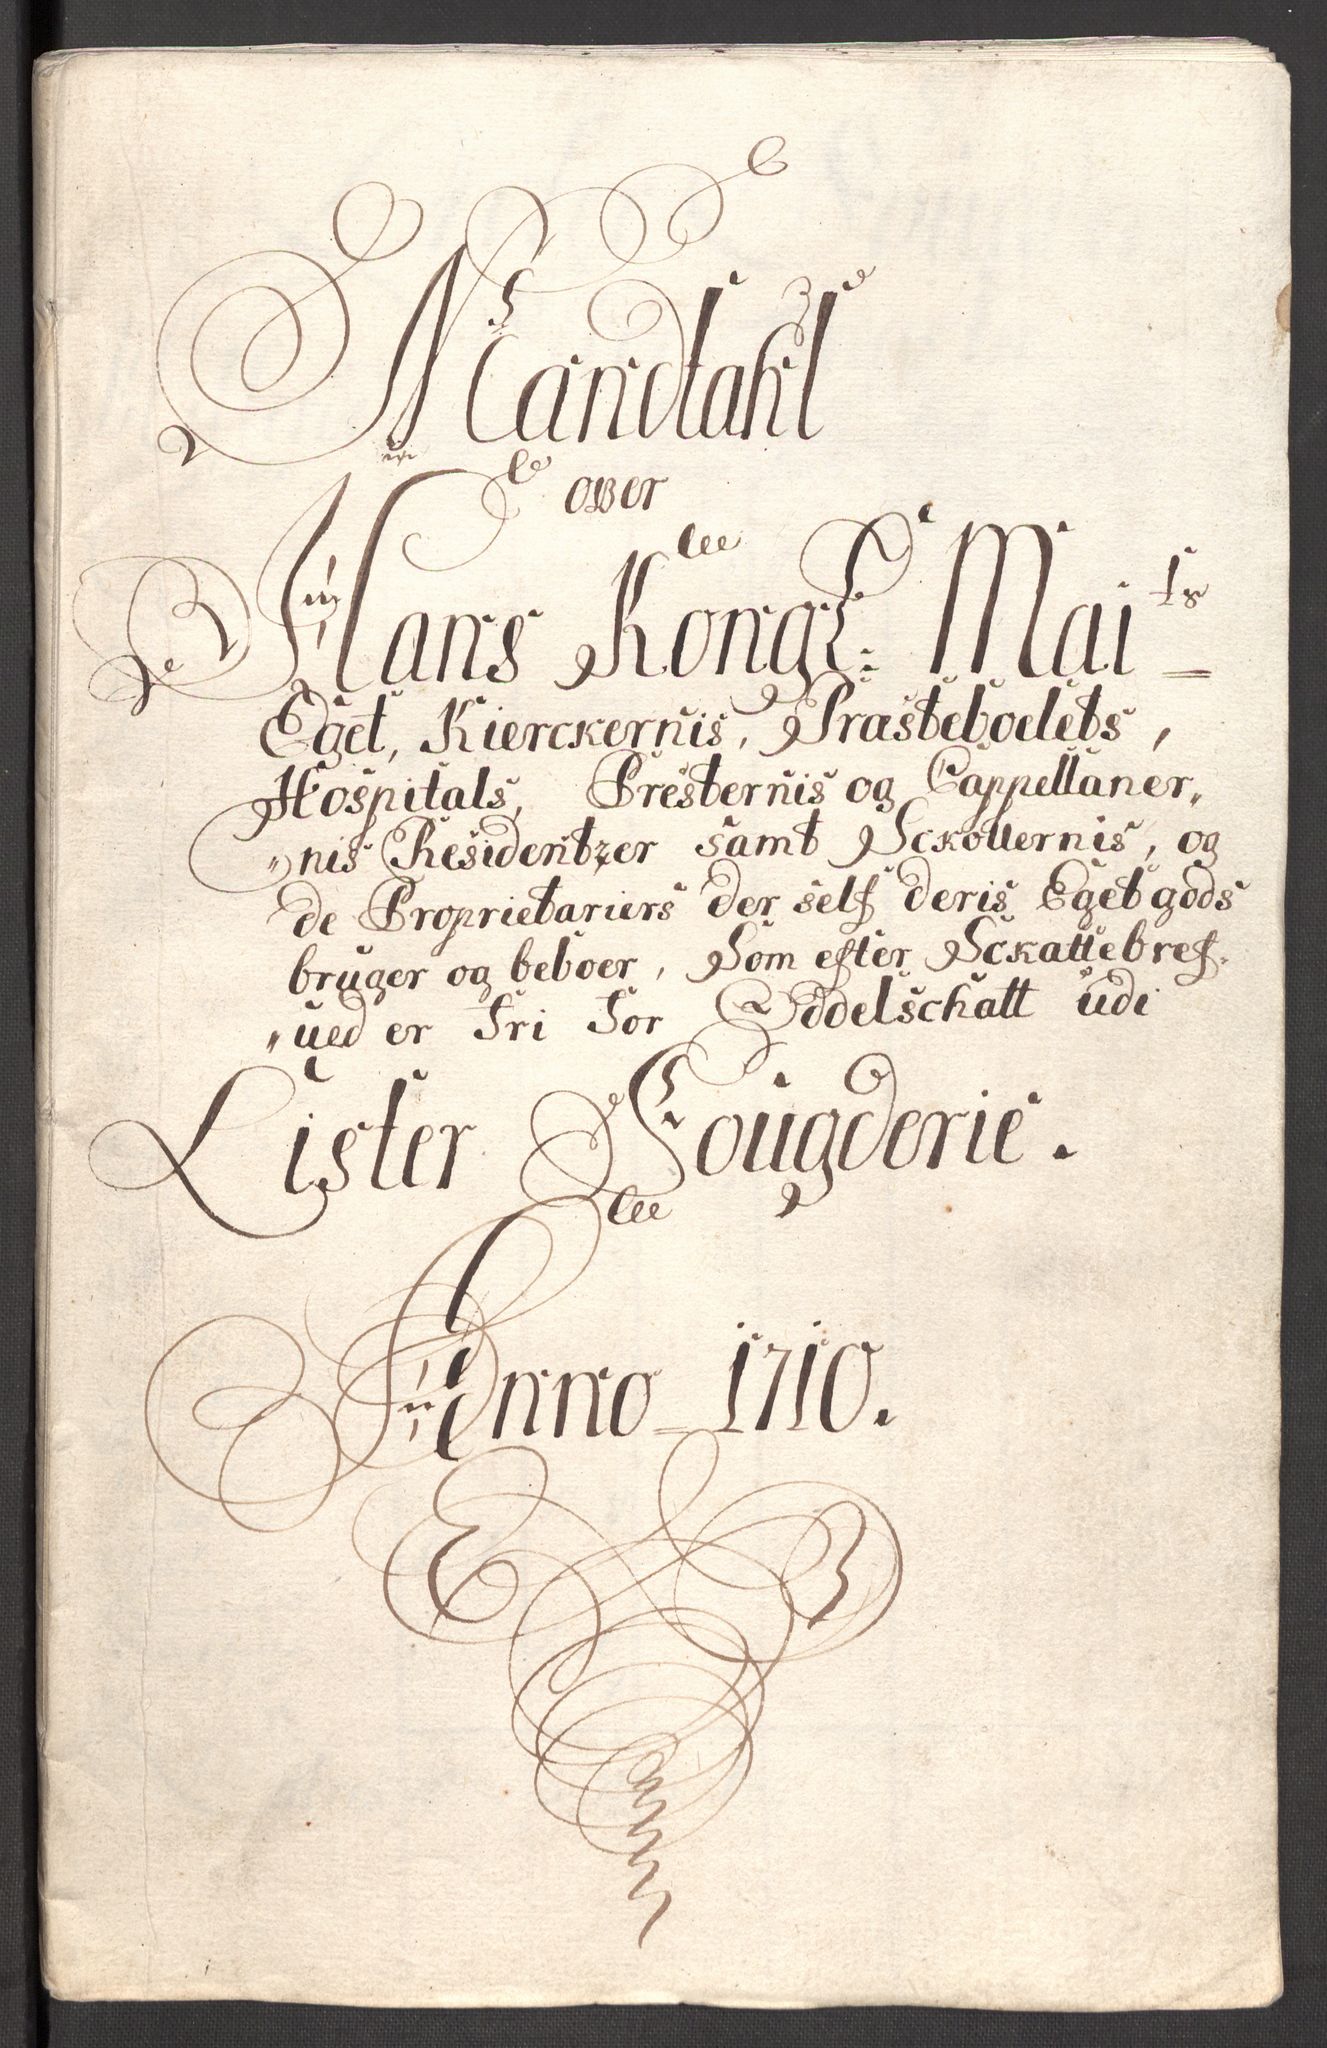 Mandtahl
over
Hans Kongl: Maits
Eget, Kierckernis, Præsteboelets,
Hospitals, Presternis og Cappellaner„
„nis Residentzer samt Sckollernis, og
de Proprietariers der self deris Eget gods
bruger og beboer, Som efter Sckattebref„
„ued er fri for Oddelschatt udi
Lister Fougderie.
Anno 1710.